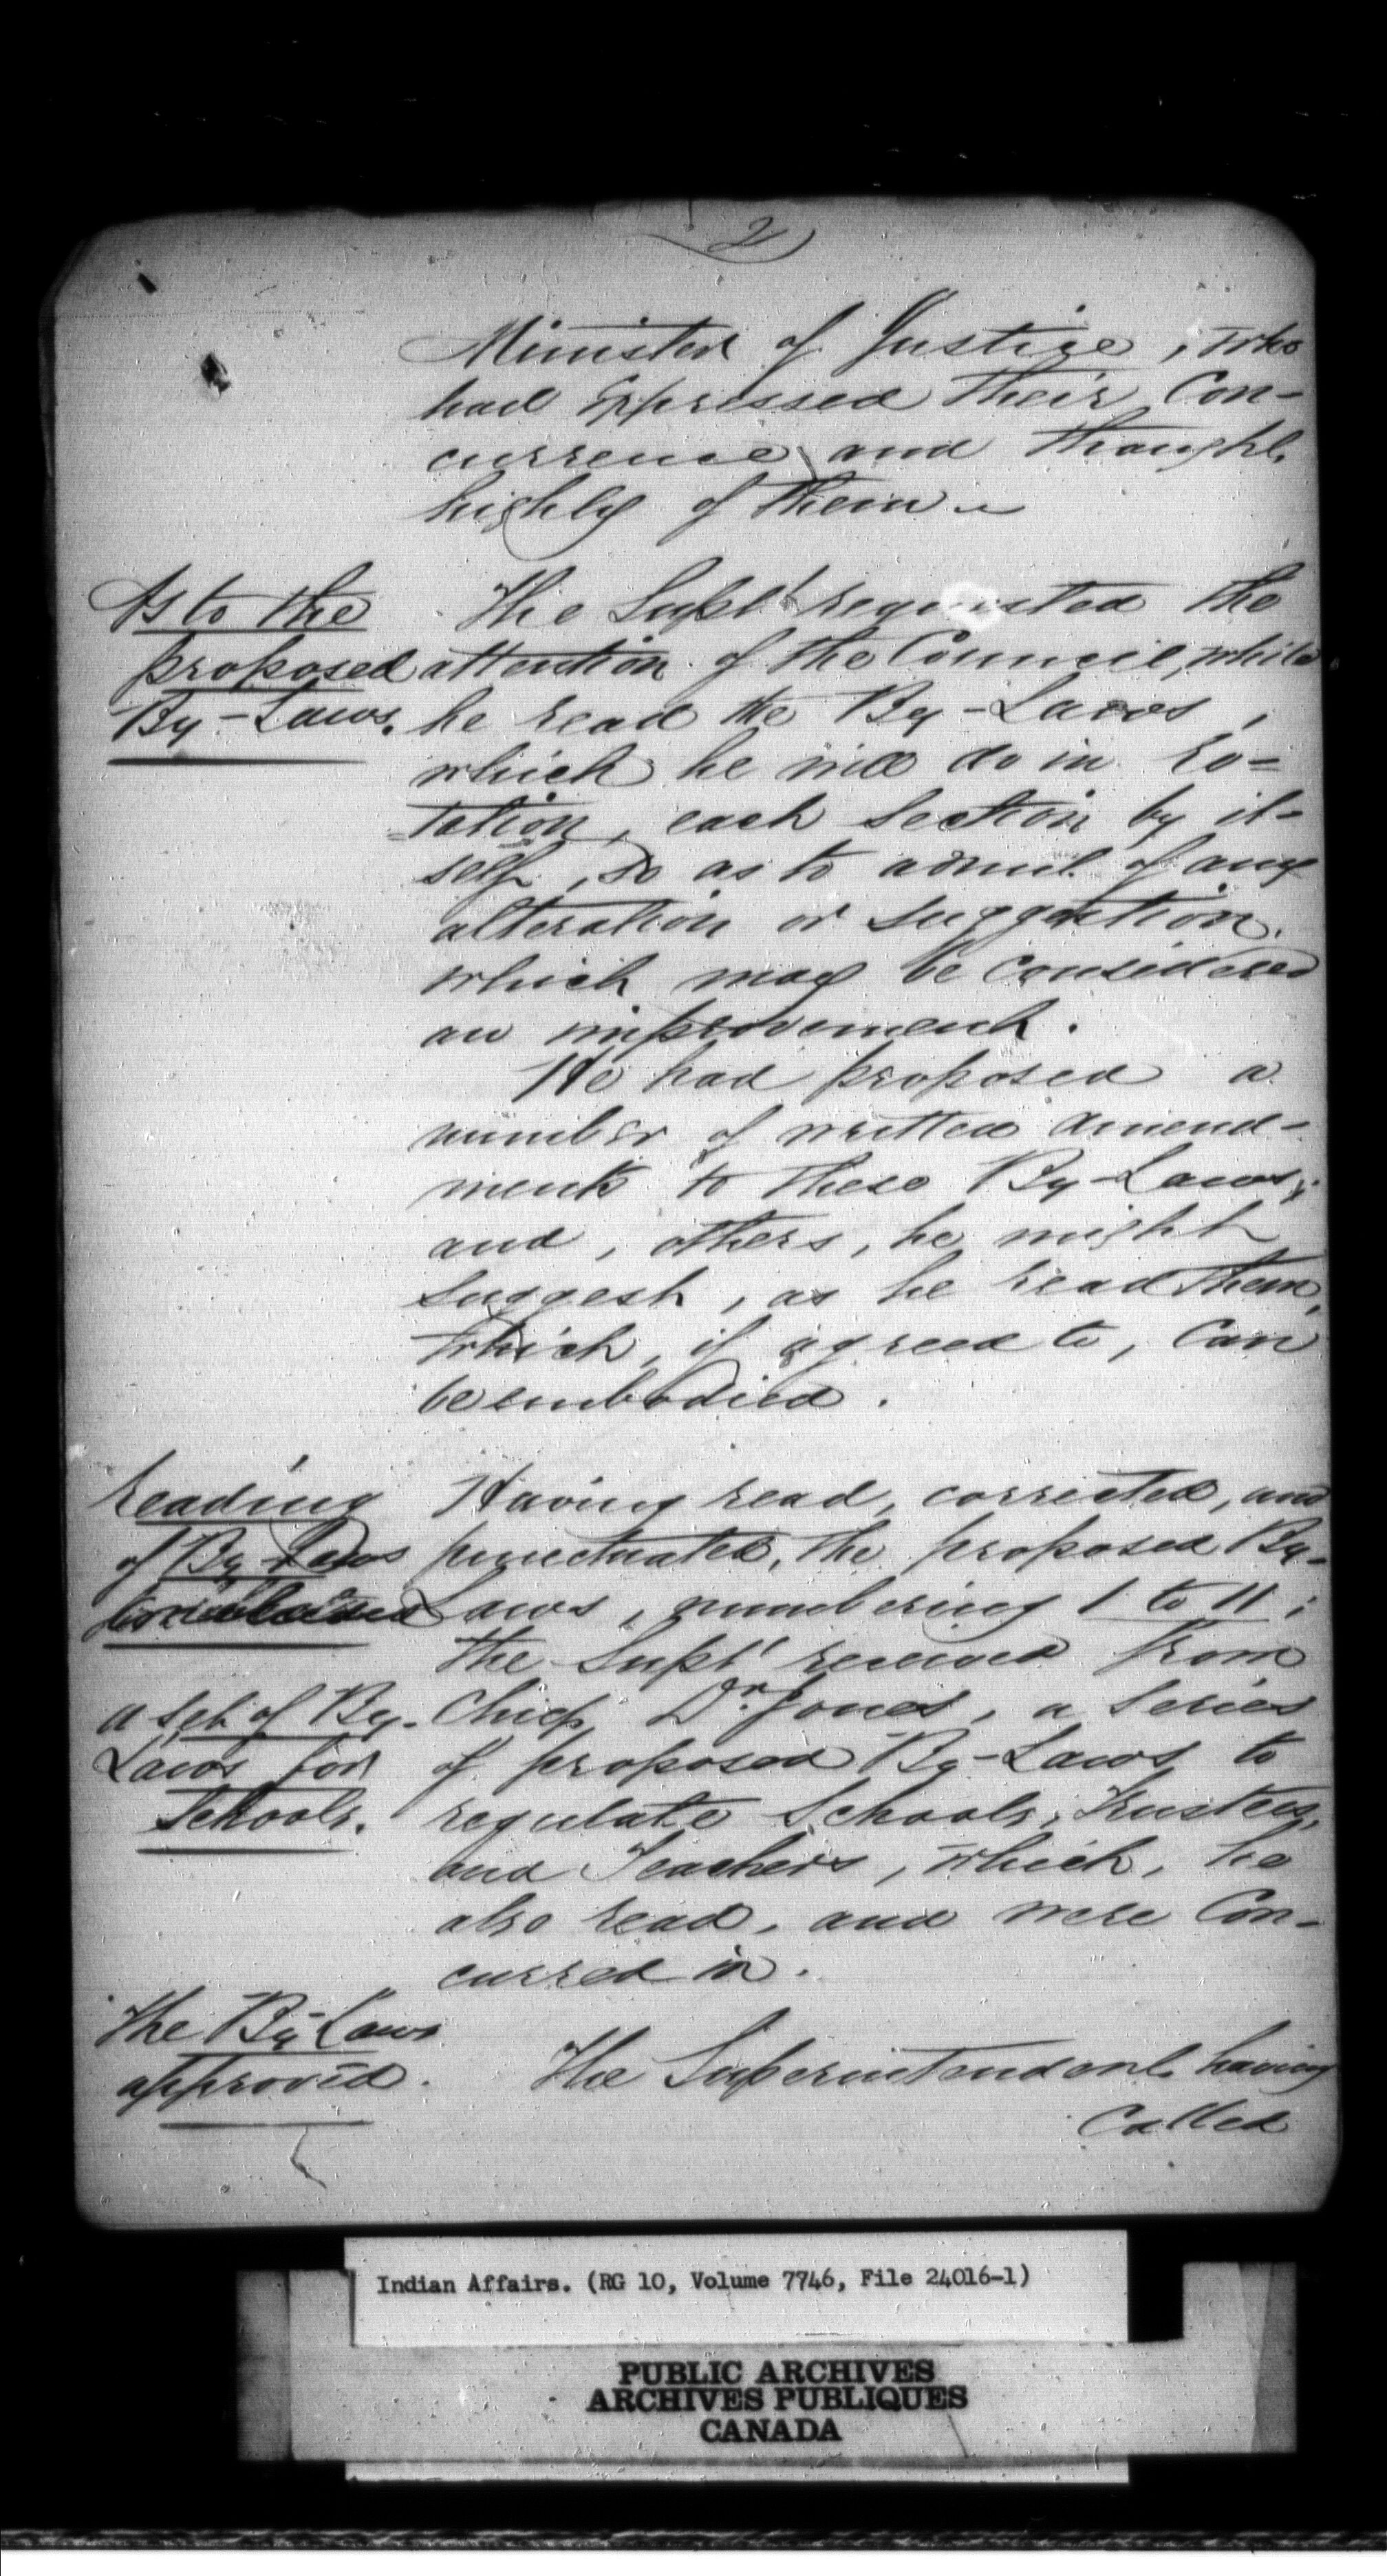 2
Minister of Justice, who
had expressed their Con-
currence, and thought
highly of them.
As to the
proposed
By-Laws.
The Supt. requested the
attention of the Council, while
he read the By-Laws,
which he will do in ro-
tation, each section by it-
self, so as to admit of any
alteration or suggestion
which may be considered
an improvement.
He had proposed a
number of written amend-
ments to these By-Laws;
and, others, he might
suggest, as he read them,
which, if agreed to, can
be embodied.
Reading
of By-Laws
Having read, corrected, and
punctuated, the proposed By-
Laws, numbering 1 to 11;
the Supt. received from
A set of By-
Laws for
Schools.
Chief Dr. Jones, a series
of proposed By-Laws to
regulate Schools, Trustees,
and Teachers, which, he
also read, and were Con-
curred in.
The By-Laws
approved.
The Superintendent having
called
Indian Affairs. (RG 10, Volume 7746, File 24016-1)
PUBLIC ARCHIVES
ARCHIVES PUBLIQUES
CANADA